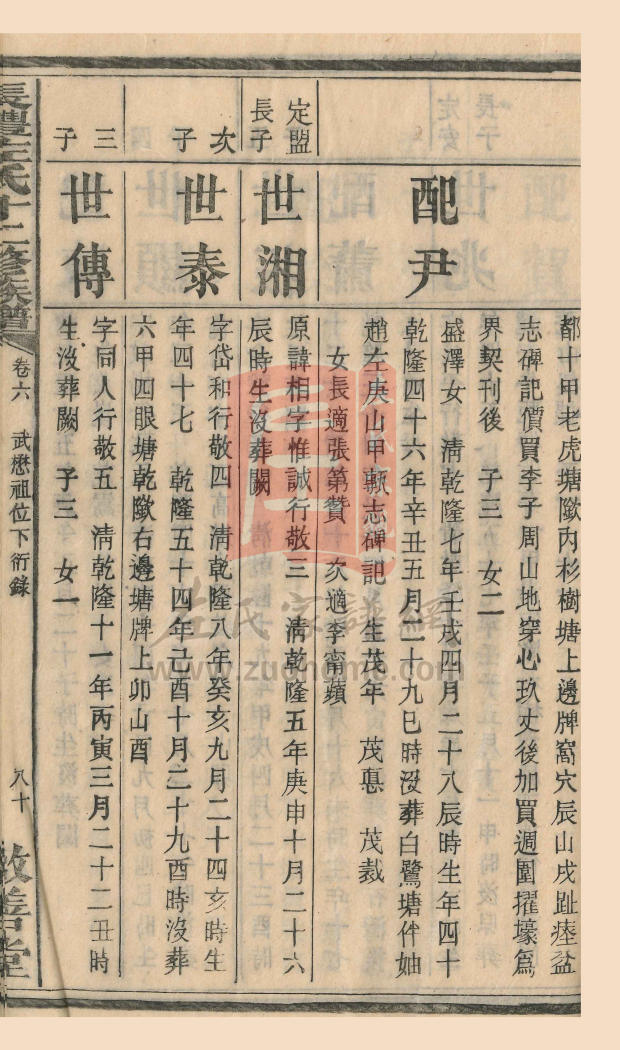 都十甲老虎塘歐內杉樹塘上邊牌窩穴辰山戌趾瘞盆
志碑記價買李子周山地穿心玖丈後加買週圍擢壕爲
界契刊後 子三 女二
配尹
盛澤女 清乾隆七年壬戌四月二十八辰時生年四十
乾隆四十六年辛丑五月二十九巳時沒葬白鷺塘伴妯
趙左庚山甲歐志碑記 生茂年 茂惪 茂裁
女長適張第贊 次適李甯蘋
定盟
長子
世湘
原諱相字惟誠行敬三 清乾隆五年庚申十月二十六
辰時生沒葬闕
次子
世泰
字岱和行敬四 清乾隆八年癸亥九月二十四亥時生
年四十七 乾隆五十四年己酉十月二十九酉時沒葬
六甲四眼塘乾歐右邊塘牌上卯山酉
三子
世傳
字同人行敬五 清乾隆十一年丙寅三月二十二丑時
生沒葬闕 子三 女一
長澧左氏十二修族譜
卷六 武懋祖位下衍錄
八十
敦善堂
左氏家譜網
www.zuohome.com